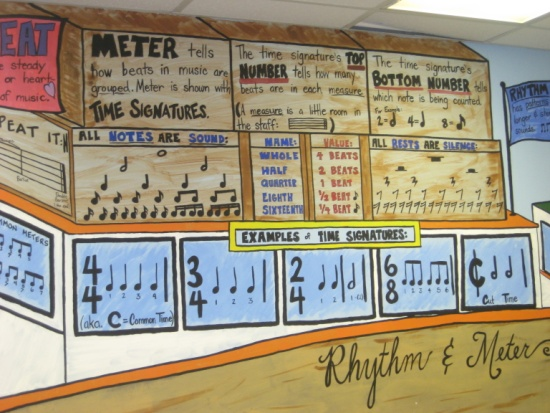 EAT
e steady
or heart-
of music.
METER tells
how beats in music are
grouped. Meter is shown with
TIME SIGNATURES.
The time signature's TOP
NUMBER tells how many
beats are in each measure.
(A measure is a little room in
the staff:
The time signature's
BOTTOM NUMBER tells
which note is being counted.
For Example:
2= 4= 8=
RHYTHM
PEAT IT:
ALL NOTES ARE SOUND:
NAME: VALUE:
WHOLE 4 BEATS
HALF 2 BEATS
QUARTER 1 BEAT
EIGHTH ½ BEAT
SIXTEENTH ¼ BEAT
ALL RESTS ARE SILENCE:
EXAMPLES of TIME SIGNATURES:
MMON METERS
4 4
1 2 3 4
(aka. C = Common Time)
3 4
1 2 3
2 4
1 2 1-(2)
6 8
1 2 3 4 5 6
¢
Cut Time
Rhythm & Meter